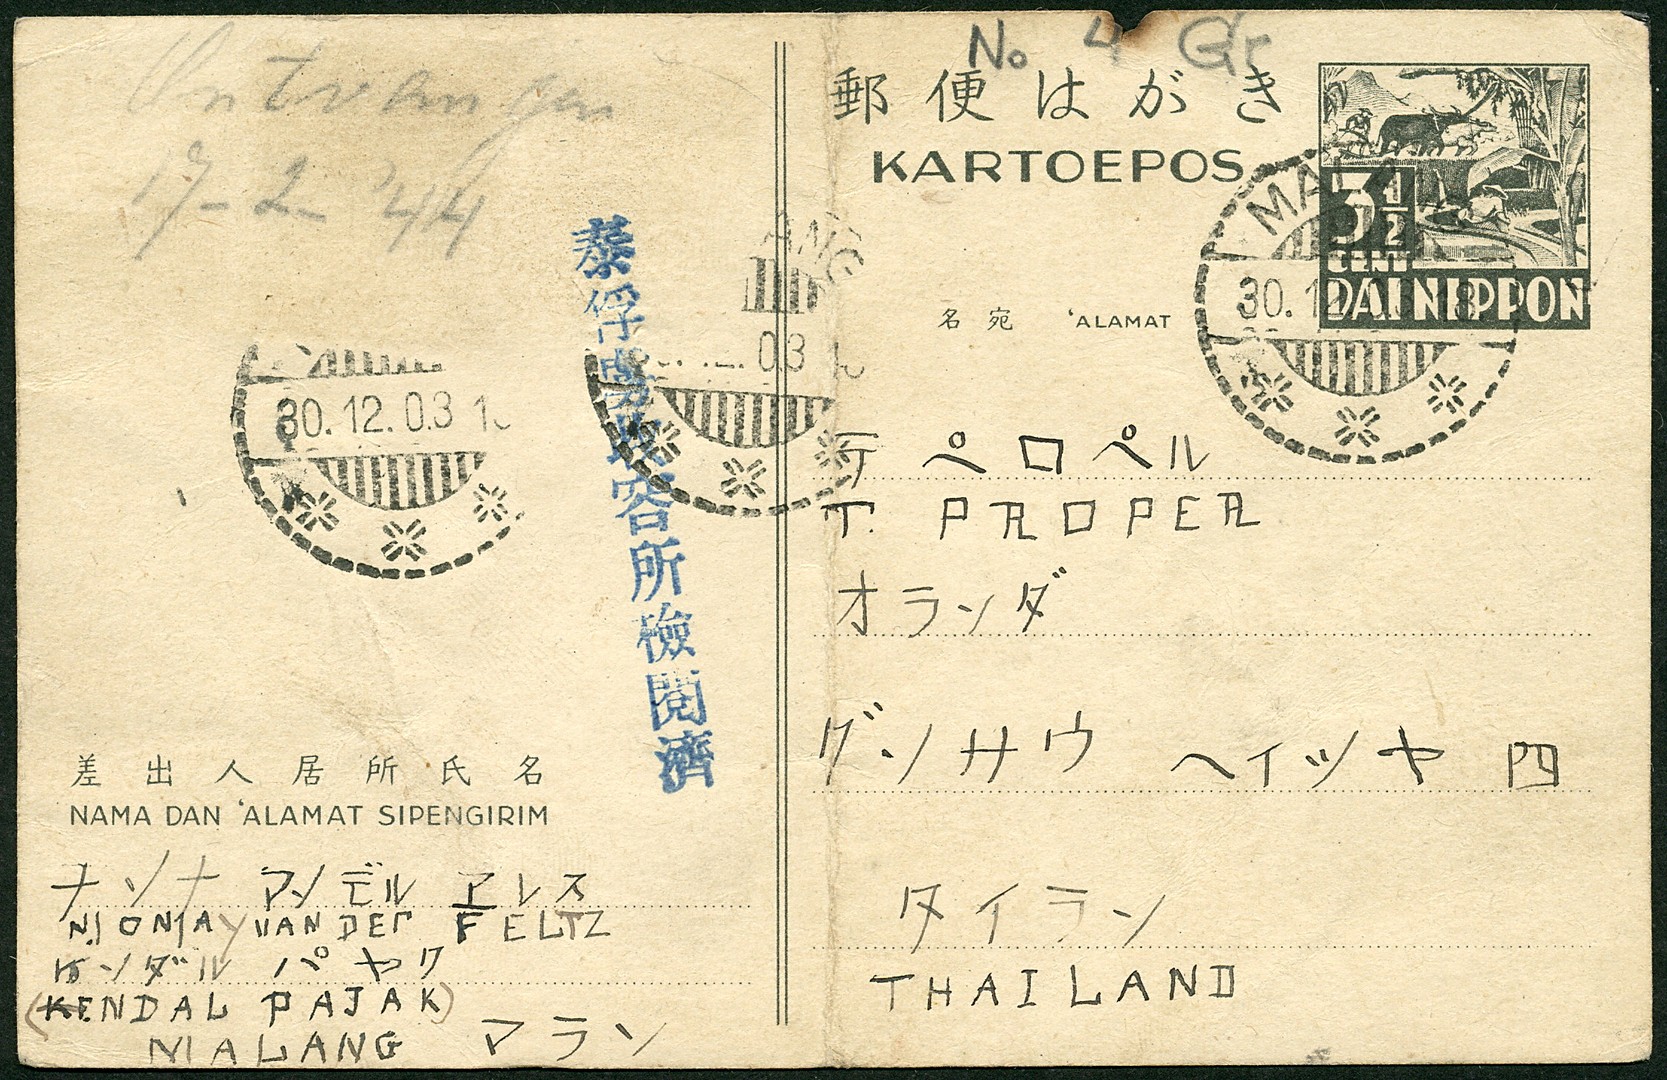 Ontvangen
17-2-'44
No 4 Gr
郵便はがき
KARTOEPOS
3½
CENT
DAI NIPPON
MALANG
30.12.03 18
名宛 'ALAMAT
ANG
03
30.12.03
泰俘虜収容所檢閲濟
テ ペロペル
T. PROPER
オランダ
グンサウ ヘイツヤ 四
タイラン
THAILAND
差出人居所氏名
NAMA DAN 'ALAMAT SIPENGIRIM
ナンナ アンデル エレス
NJONJA VAN DER FELTZ
ケンダル パヤク
(KENDAL PAJAK)
MALANG マラン